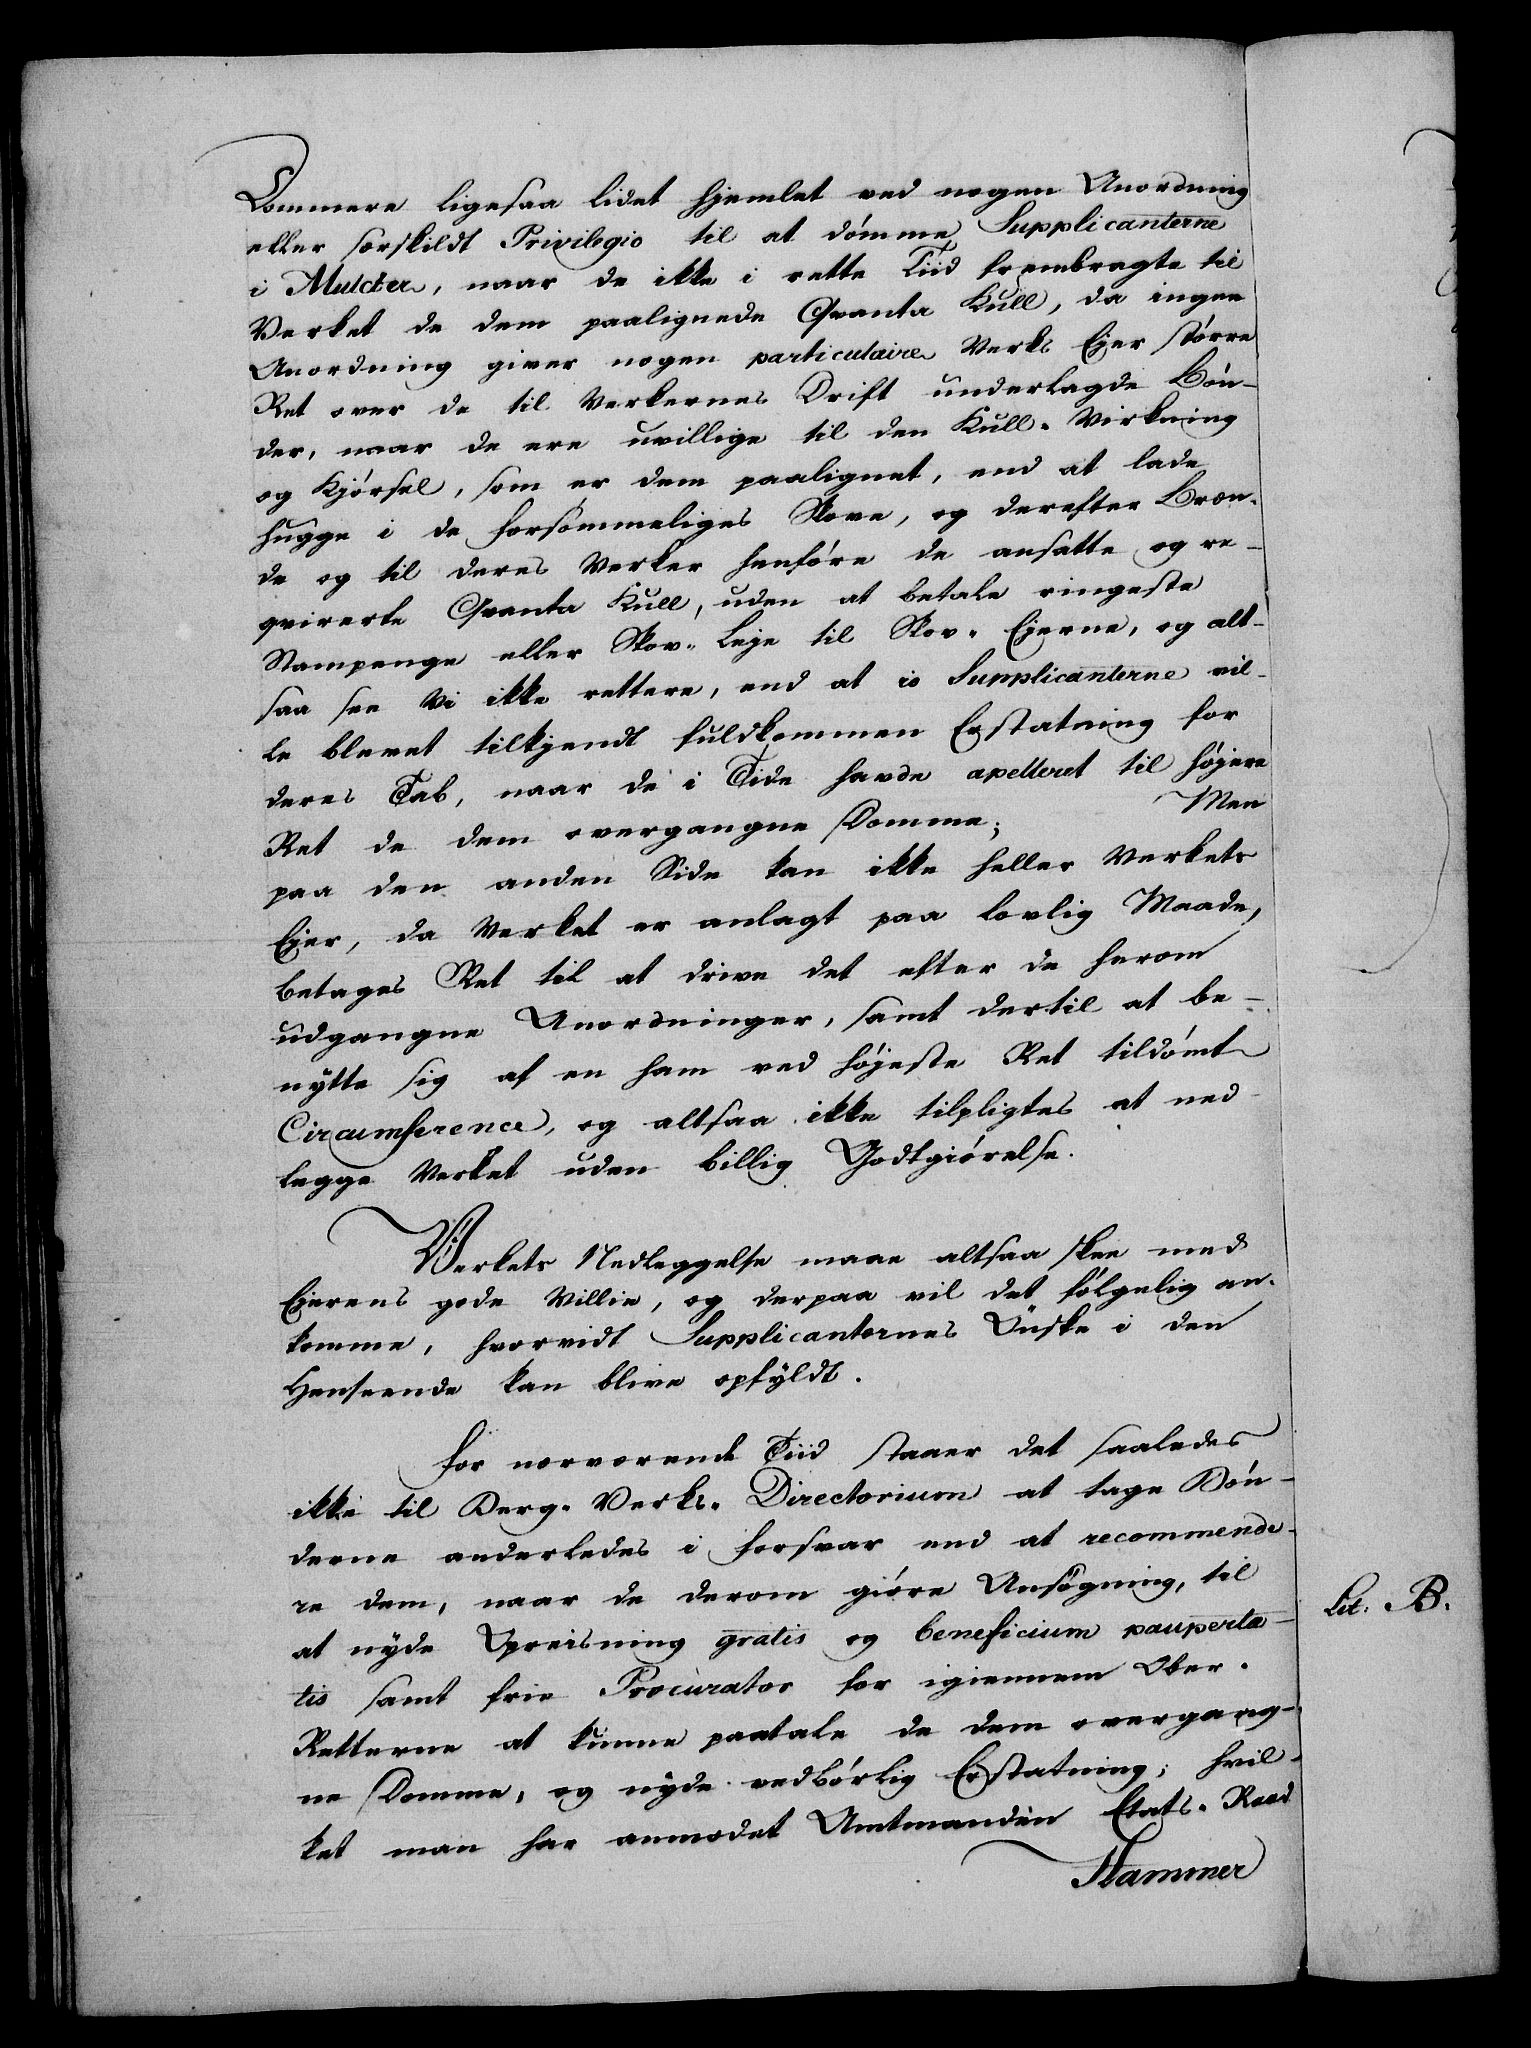 Dommere ligesaa lidet hjemlet ved nogen Anordning
eller særskildt Privilegio til at dømme Supplicanterne
i Mulcter, naar de ikke i rette Tiid frembragte til
Verket de dem paalignede Qvanta Kull, da ingen
Anordning giver nogen particulaire Verks Ejer større
Ret over de til Verkernes Drift underlagde Bøn-
der, naar de ere uvillige til den Kull-Virkning
og Kjørsel, som er dem paalignet, end at lade
hugge i de forsømmeliges Skove, og derefter Bræn-
de og til deres Verker henføre de ansatte og re-
qvirerte Qvanta Kull, uden at betale ringeste
Stampenge eller Skov-Leje til Skov-Ejerne, og alt-
saa see Vi ikke rettere, end at jo Supplicanterne vil-
le blevet tilkjendt fuldkommen Erstatning for
deres Tab, naar de i Tide havde apelleret til højere
Ret de dem overgangne Domme; Men
paa den anden Side kan ikke heller Verkets
Ejer, da Verket er anlagt paa lovlig Maade,
betages Ret til at drive det efter de herom
udgangne Anordninger, samt dertil at be-
nytte sig af en ham ved højeste Ret tildømt
Circumference, og altsaa ikke tilpligtes at ned-
legge Verket uden billig Godtgiørelse.
Verkets Nedleggelse maae altsaa skee med
Ejerens gode Villie, og derpaa vil det følgelig an-
komme, hvorvidt Supplicanternes Ønske i den
Henseende kan blive opfyldt.
For nærværende Tiid staaer det saaledes
ikke til Berg-Verks-Directorium at tage Bøn-
derne anderledes i Forsvar end at recommende-
re dem, naar de derom giøre Ansøgning, til
at nyde Opreisning gratis og beneficium pauperta-
tis samt frie Procurator for igiennem Over-
Retterne at kunne paatale de dem overgang-
ne Domme, og nyde vedbørlig Erstatning; hvil-
ket man har anmodet Amtmanden Etats-Raad
Hammer
Lit. B.